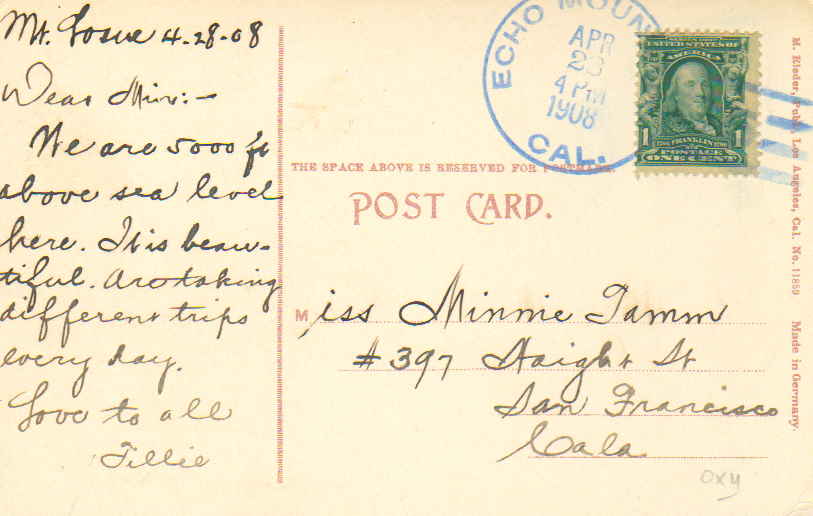 Mt. Lowe 4-28-08
Dear Min:-
We are 5000 ft
above sea level
here. It is beau-
tiful. Are taking
different trips
every day.
Love to all
Tillie
ECHO MOUN
APR
28
4 PM
1908
CAL.
UNITED STATES OF
AMERICA
1 FRANKLIN 1
POSTAGE
ONE CENT
THE SPACE ABOVE IS RESERVED FOR POSTMARK.
POST CARD.
Miss Minnie Tamm
#397 Haight St
San Francisco
Cala
OXY
M. Rieder, Publ., Los Angeles, Cal. No. 11859 Made in Germany.